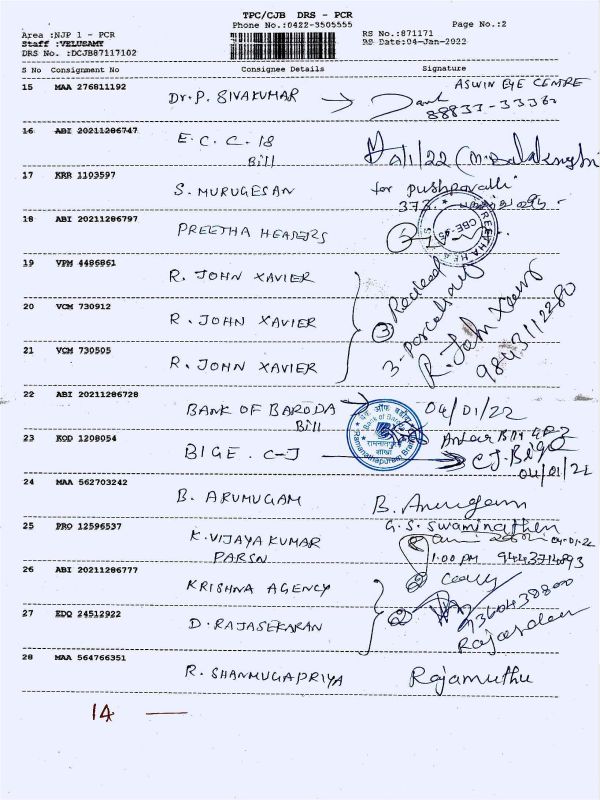 TPC/CJB DRS - PCR
Phone No.:0422-3505555
Page No.:2
Area :NJP 1 - PCR
Staff :VELUSAMY
DRS No. :DCJB87117102
RS No.:871171
RS Date:04-Jan-2022
S No Consignment No Consignee Details Signature
15 MAA 276811192 Dr. P. SIVAKUMAR ASWIN EYE CENTRE
16 ABI 20211286747 E. C. C. 18
Bill
17 KRR 1103597 S. MURUGESAN for pushpavalli
373
18 ABI 20211286797 PREETHA HEARERS
19 VPM 4486861 R. JOHN XAVIER
20 VCM 730912 R. JOHN XAVIER
21 VCM 730505 R. JOHN XAVIER
3 Parcel
R. John Xavier
9843112280
22 ABI 20211286728 BANK OF BARODA 04/01/22
Bill
बैंक ऑफ बड़ौदा
Bank of Baroda
Ramanathapuram Branch
23 KOD 1208054 BIGE. C-J
04/01/22
24 MAA 562703242 B. ARUMUGAM B. Arumugam
25 PRO 12596537 K. VIJAYA KUMAR G. S. Swaminathan
PARSN 1.00 PM
26 ABI 20211286777 KRISHNA AGENCY
27 EDQ 24512922 D. RAJASEKARAN
9360438800
28 MAA 564766351 R. SHANMUGAPRIYA Rajamuthu
14 —